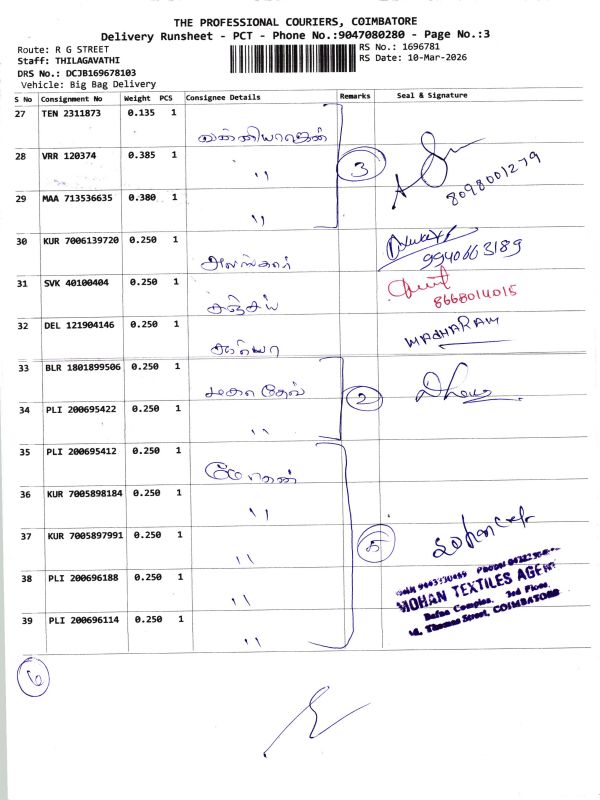 THE PROFESSIONAL COURIERS, COIMBATORE
Delivery Runsheet - PCT - Phone No.:9047080280 - Page No.:3
Route: R G STREET
RS No.: 1696781
Staff: THILAGAVATHI
RS Date: 10-Mar-2026
DRS No.: DCJB169678103
Vehicle: Big Bag Delivery
S No Consignment No Weight PCS Consignee Details Remarks Seal & Signature
27 TEN 2311873 0.135 1
28 VRR 120374 0.385 1 " 3
8098001279
29 MAA 713536635 0.380 1 "
30 KUR 7006139720 0.250 1
9940663189
31 SVK 40100404 0.250 1 சஞ்சய்
8668014015
32 DEL 121904146 0.250 1
33 BLR 1801899506 0.250 1 மகாதேவ் 2
34 PLI 200695422 0.250 1 "
35 PLI 200695412 0.250 1 மோகன்
36 KUR 7005898184 0.250 1 "
37 KUR 7005897991 0.250 1 " 5
38 PLI 200696188 0.250 1 "
MOHAN TEXTILES AGENT
39 PLI 200696114 0.250 1 "
3rd Floor,
Thomas Street, COIMBATORE
6